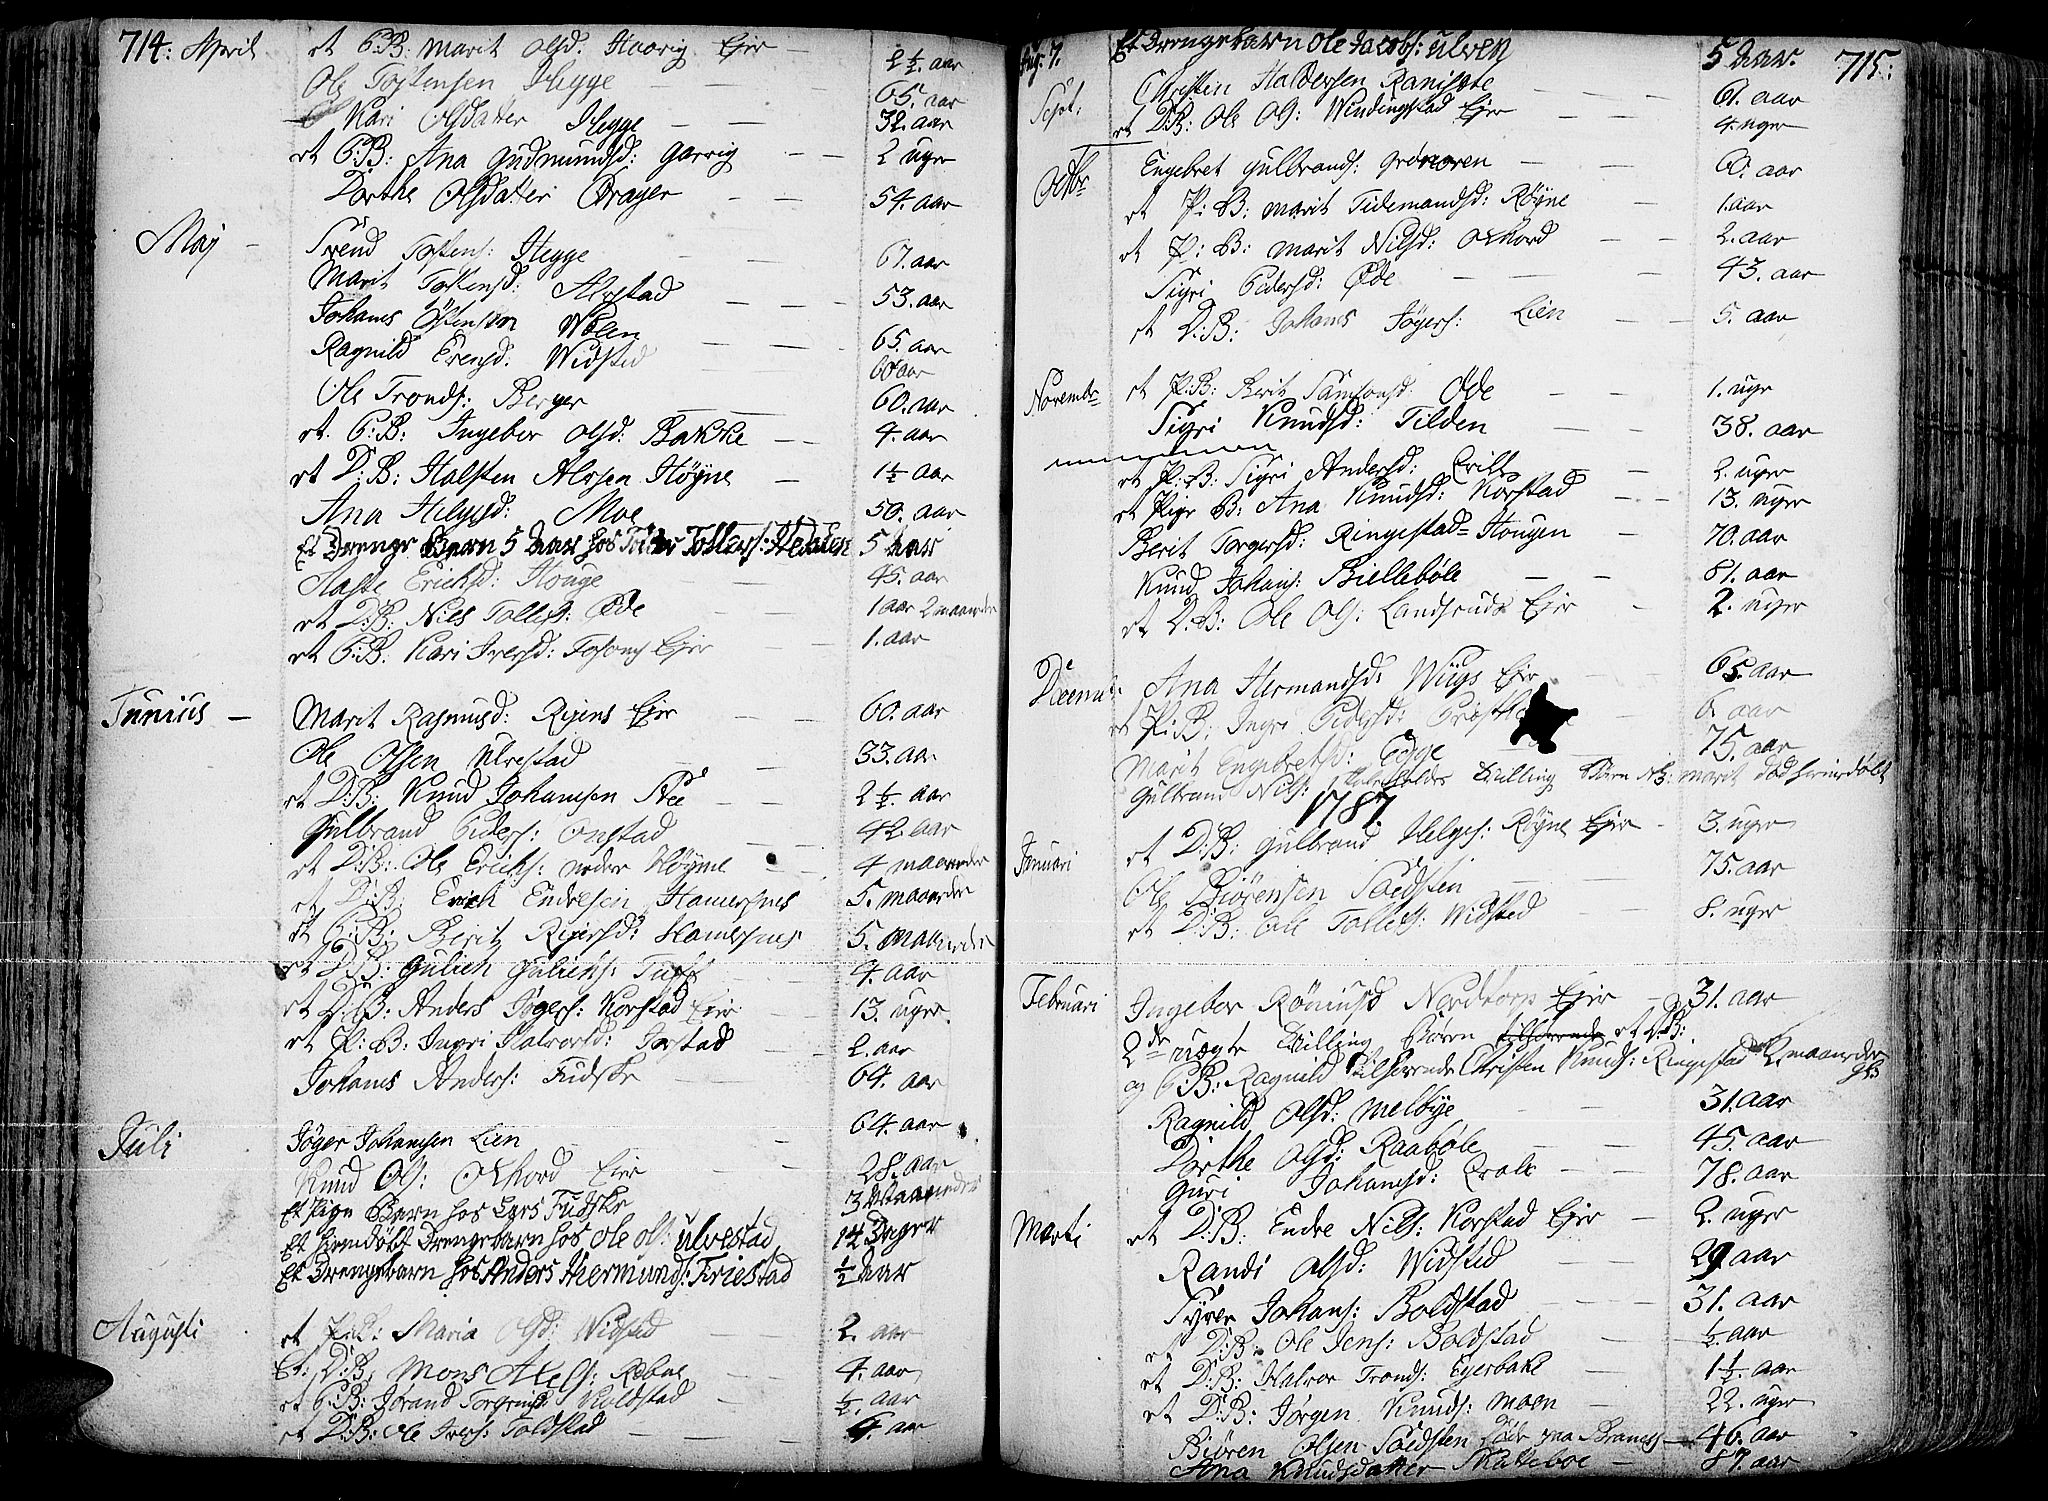 714: April et P:B: Marit Olsd: Haavig Eje 2½. aar
Ole Tostensen Hegge 65. aar
Kari Olsdatter Hegge 32. aar
et P:B: Ana Gudmundsd: Garvig 2 uger
Dorthe Olsdatter Drager 54. aar
Maj Svend Tostens: Hegge 67. aar
Marit Tostensd: Alvstad 53. aar
Johans Østensen Wolen 65. aar
Ragnild Evensd: Widsted 60 aar
Ole Tronds: Berger 60. aar
et P:B: Ingebor Olsd: Bakke 4. aar
et D:B: Halsten Alvsen Høyne 1½ aar
Ana Helgesd: Moe 50. aar
Et Drenge Barn 5 Aar hos Tollev Tollevs: Hedalen 5 Aar
Aaste Erichsd: Houge 45. aar
et D:B: Nils Tollefs: Øde 1 aar 2 maaneder
et P:B: Kari Iversd: Eje 1. aar
Junius Marit Rasmusd: Rixens Eje 60. aar
Ole Olsen Ulvestad 33. aar
et D:B: Knud Johansen Stee 2½. aar
Gulbrand Peders: Onstad 42. aar
et D:B: Ole Erichs: neder Høyne 4 maaneder
et D:B: Erich Endresen Hamersnes 5. maaneder
et P:B: Berit Hamersnes 5. maaneder
et D:B: Gulich Gulichs: Tuff 4. aar
et D:B: Anders Jøgers: Korstad Eje 13. uger
et P:B: Ingri Halvorsd: Jorstad 2. aar
Johans Anders: Fudske 64. aar
Juli Jøger Johansen Lien 64. aar
Knud Ols: Olhord Eje 28. aar
Et Pige Barn hos Lars Fudske 3 Maaneder
Et hiemdøbt Drengebarn hos Ole Ols: Ulvestad 14 Dager
Et Drengebarn hos Anders Hermunds: Friestad ½ Aar
Augusti et P:B: Maria Olsd: Widsted 2. aar
Et: D:B: Mons Robøl 4. aar
et P:B: Jørand Torgrimsd: Koldstad ½. aar
et D:B: Ole Ivers: Foldstad aar
Aug: 7. Et Drengebarn Ole Jacobs: Ulven 5 Aar. 715:
Sept: Christen Haldorsen Ranisgte 61. aar
et D:B: Ole Ols: Windingstad Eje 4. uger
Octbr Engebret Gulbrands: Grönoren 60. aar
et P:B: Marit Tidemandsd: Røyne 1. aar
et P:B: Marit Nilsd: Olhord 2. aar
Sigri Pedersd: Øde 43. aar
et D:B: Johans Jøgers: Lien 5. aar
Novembr et P:B: Berit Samsonsd: Øde 1. uge
Sigri Knudsd: Tilden 38. aar
et P:B: Sigri Andersd: 2. uger
et Pige B: Ana Knudsd: Korstad 13. uger
Berit Torgersd: Ringestad=Hougen 70. aar
Knud Johans: Biellebøle 81. aar
et D:B: Ole Ols: Landsruds Eje 2. uger
Decemb: Ana Hermandsd: Wiigs Eje 65. aar
et P:B: Ingri Pedersd: 6. aar
Marit Engebretsd: Egge 75. aar
Gulbrand Nils: Tvilling Børn Nb: Marit død hiemdøbt
1787.
Januari et D:B: Gulbrand Helges: Røyne Eje 3. uger
Ole Biørensen Sædsten 75. aar
et D:B: Ole Tollefs: Widsted 8. uger
Februari Ingebor Nordtorp Eje 31. aar
2de uægte Tvilling Børn et D:B:
og P:B: Ragnild tilhørende Christen Knuds: Ringestad 2. maaneder gl:
Ragnild Olsd: Melbye 31. aar
Dorthe Olsd: Raabøle 45. aar
Guri Johansd: 78. aar
Marti et D:B: Endre Nils: Korstad Eje 2. uger
Randi Olsd: Widsted 29 aar
Syver Johans: Boldstad 31. aar
et D:B: Ole Jens: Boldstad ½. aar
et D:B: Halvor Tronds: Eyerbake 1½. aar
et D:B: Jørgen Knuds: Moen 22. uger
Biøren Olsen Sædsten 46. aar
Ana Knudsdatter Skatteboe 87. aar